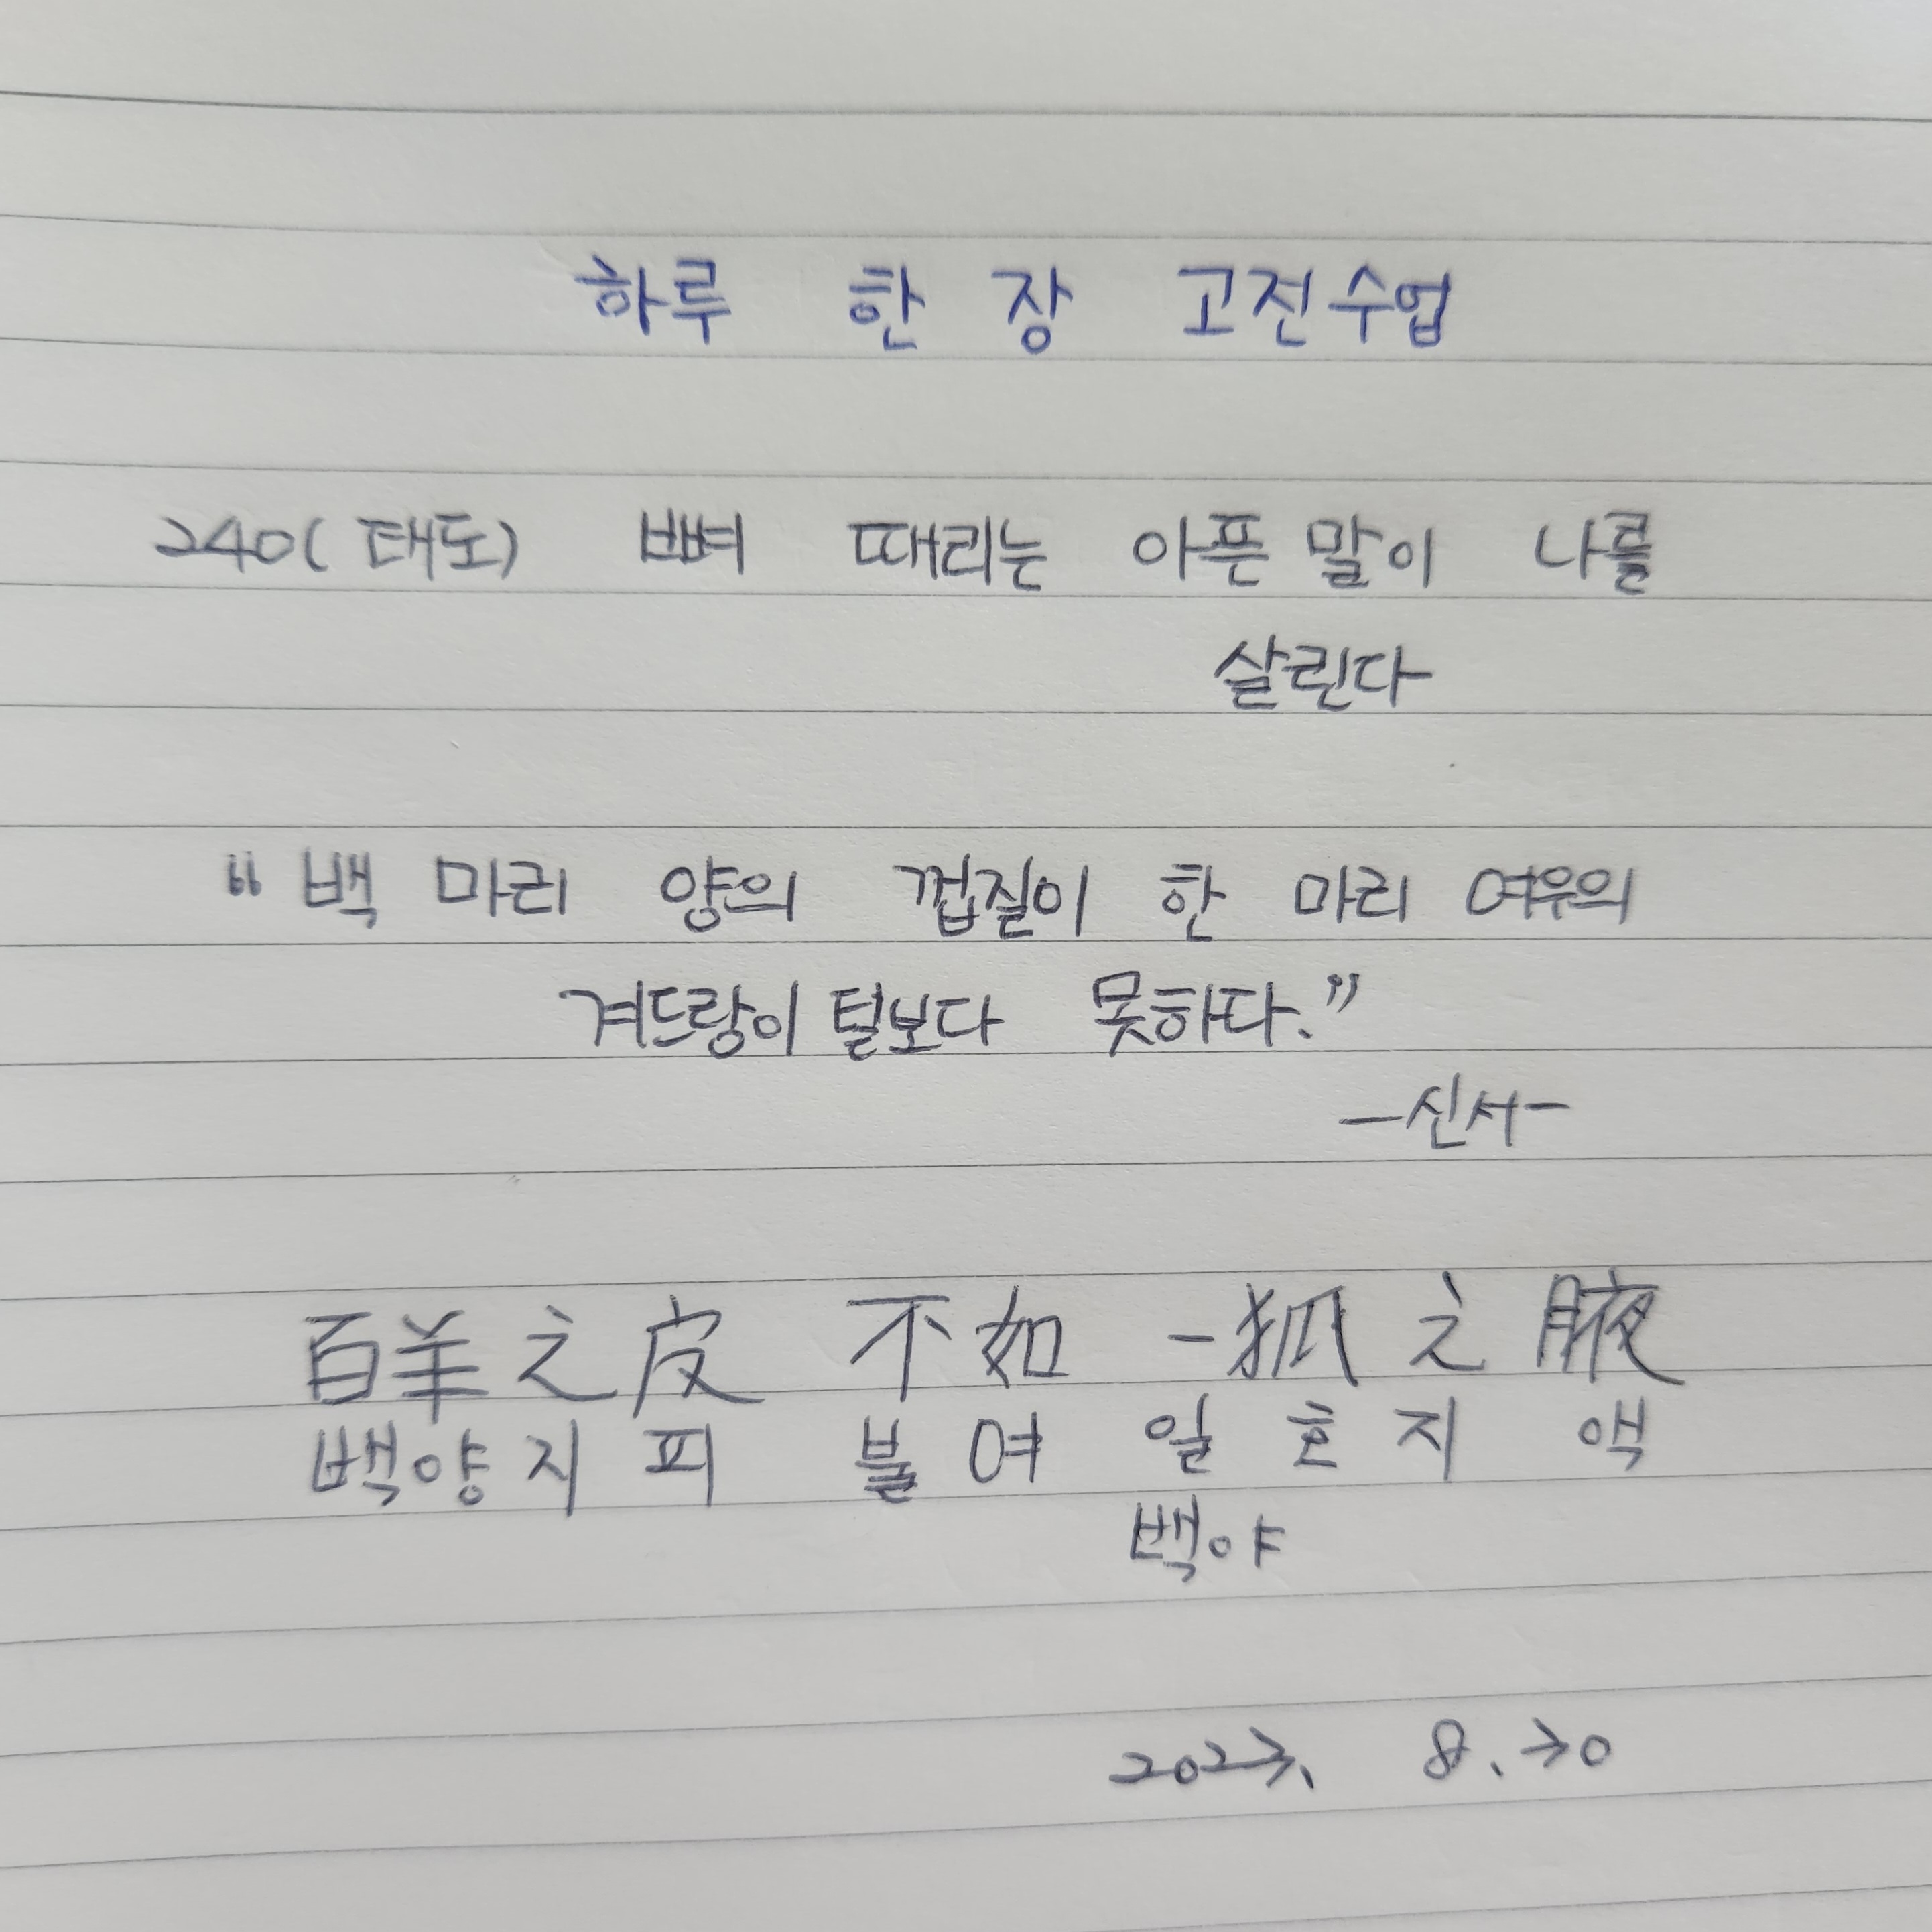 하루 한 장 고전수업
240(태도) 뼈 때리는 아픈 말이 나를
살린다
“백 마리 양의 껍질이 한 마리 여우의
겨드랑이 털보다 못하다.”
-신서-
百羊之皮 不如 一狐之腋
백양지피 불여 일호지액
백야
2023. 8. 30